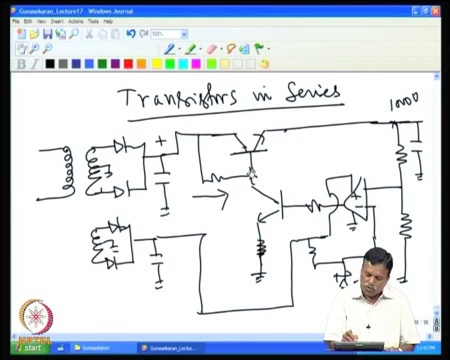 Gunasekaran_Lecture17 - Windows Journal
File Edit View Insert Actions Tools Help
100%
B I
Transistors in Series
1000
+
+
-
NPTEL
start
Gunasekaran
Gunasekaran_Lectur...